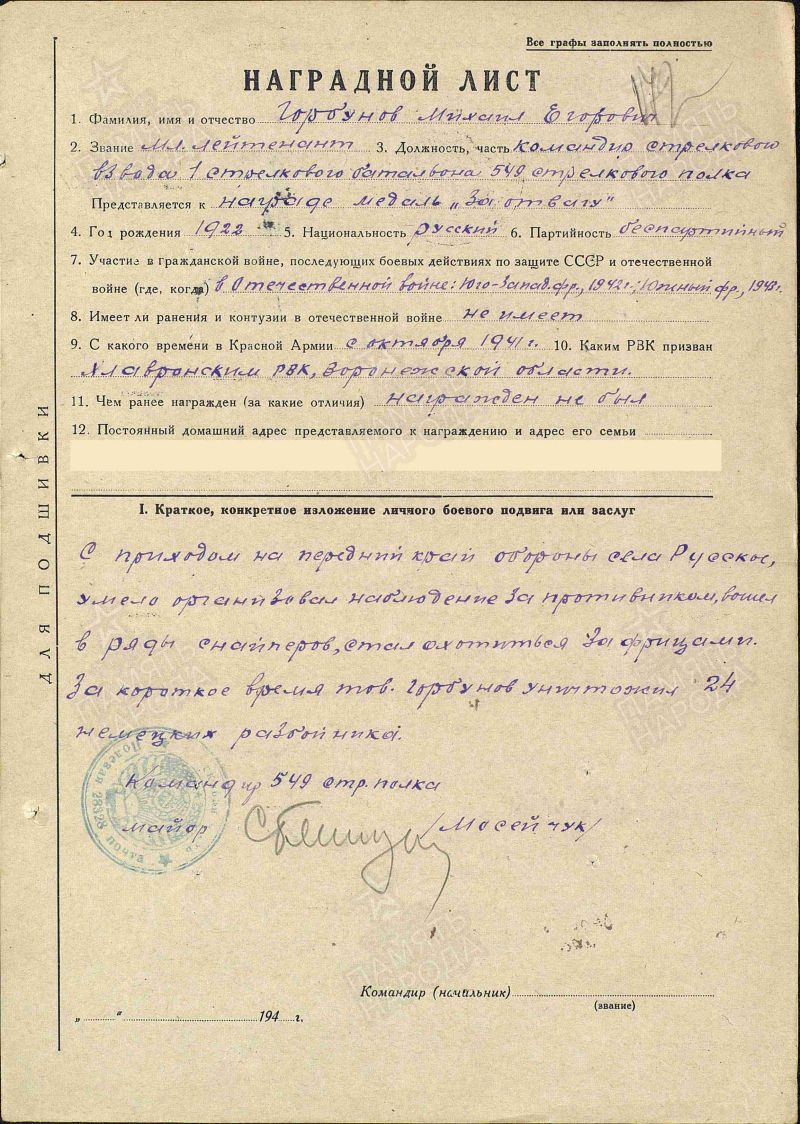 Все графы заполнять полностью
НАГРАДНОЙ ЛИСТ
1. Фамилия, имя и отчество Горбунов Михаил Егорович
2. Звание Мл. лейтенант 3. Должность, часть командир стрелкового
взвода 1 стрелкового батальона 549 стрелкового полка
Представляется к награде медаль „За отвагу"
4. Год рождения 1922 5. Национальность русский 6. Партийность беспартийный
7. Участие в гражданской войне, последующих боевых действиях по защите СССР и отечественной
войне (где, когда) в Отечественной войне: Юго-Запад. фр., 1942 г.; Южный фр., 1943 г.
8. Имеет ли ранения и контузии в отечественной войне не имеет
9. С какого времени в Красной Армии с октября 1941 г. 10. Каким РВК призван
Хлавронским РВК, Воронежской области.
11. Чем ранее награжден (за какие отличия) награжден не был
12. Постоянный домашний адрес представляемого к награждению и адрес его семьи
I. Краткое, конкретное изложение личного боевого подвига или заслуг
С приходом на передний край обороны села Русское,
умело организовал наблюдение за противником, вошел
в ряды снайперов, стал охотиться за фрицами.
За короткое время тов. Горбунов уничтожил 24
немецких разбойника.
Командир 549 стр. полка
майор /Мосейчук/
Командир (начальник)
(звание)
„ " 194 г.
ДЛЯ ПОДШИВКИ
Полевая 28328 почта
ПАМЯТЬ НАРОДА